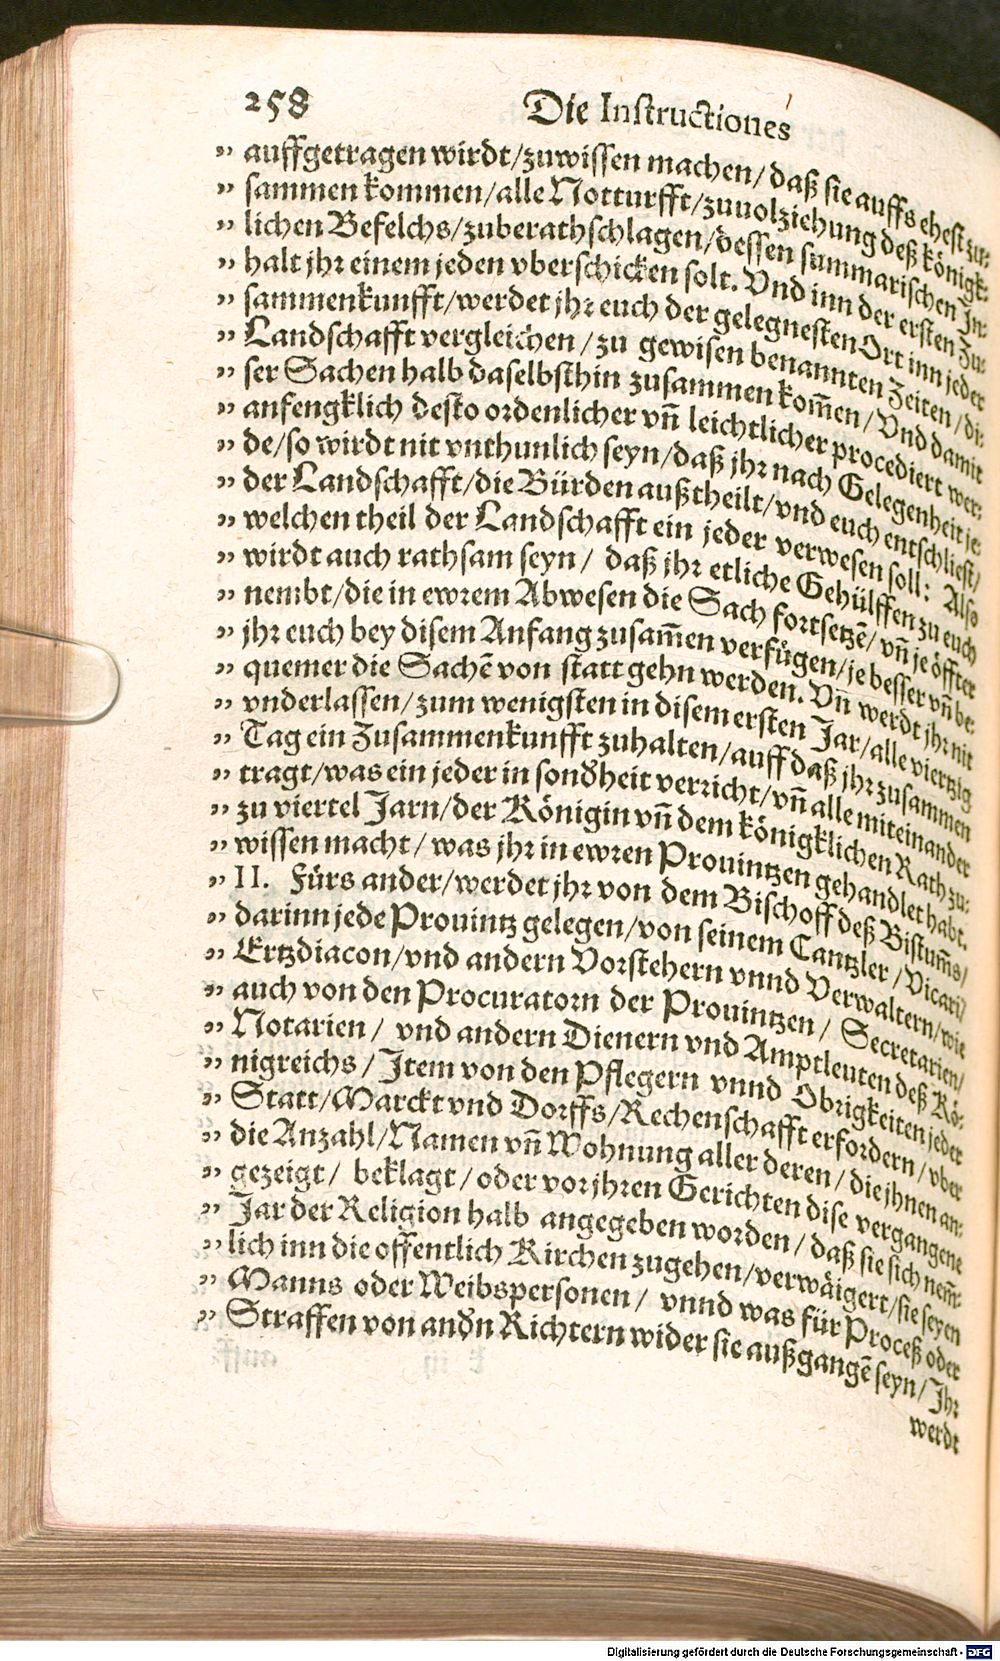 258 Die Instructiones
„ auffgetragen wirdt/zuwissen machen/daß sie auffs ehest zu-
„ sammen kommen/alle Notturfft/zuuolziehung deß königk-
„ lichen Befelchs/zuberathschlagen/dessen summarischen In-
„ halt jhr einem jeden vberschicken solt. Vnd inn der ersten Zu-
„ sammenkunfft/werdet jhr euch der gelegnesten Ort inn jeder
„ Landschafft vergleichen/zu gewisen benannten Zeiten/di-
„ ser Sachen halb daselbsthin zusammen kom̃en/Vnd damit
„ anfengklich desto ordenlicher vñ leichtlicher procediert wer-
„ de/so wirdt nit vnthunlich seyn/daß jhr nach Gelegenheit je-
„ der Landschafft/die Bürden außtheilt/vnd euch entschliest/
„ welchen theil der Landschafft ein jeder verwesen soll: Also
„ wirdt auch rathsam seyn/ daß jhr etliche Gehülffen zu euch
„ nembt/die in ewrem Abwesen die Sach fortsetzẽ/vñ je öffter
„ jhr euch bey disem Anfang zusam̃en verfügen/je besser vñ be-
„ quemer die Sachẽ von statt gehn werden. Vñ werdt jhr nit
„ vnderlassen/zum wenigsten in disem ersten Jar/alle viertzig
„ Tag ein Zusammenkunfft zuhalten/auff daß jhr zusammen
„ tragt/was ein jeder in sonđheit verricht/vñ alle miteinander
„ zu viertel Jarn/der Königin vñ dem königklichen Rath zu-
„ wissen macht/was jhr in ewren Prouintzen gehandlet habt.
„ II. Fürs ander/werdet jhr von dem Bischoff deß Bistum̃s/
„ darinn jede Prouintz gelegen/von seinem Cantzler/Vicari/
„ Ertzdiacon/vnd andern Vorstehern vnnd Verwaltern/wie
„ auch von den Procuratorn der Prouintzen/ Secretarien/
„ Notarien/ vnd andern Dienern vnd Amptleuten deß Kö-
„ nigreichs/Item von den Pflegern vnnd Obrigkeiten jeder
„ Statt/Marckt vnd Dorffs/Rechenschafft erfordern/vber
„ die Anzahl/Namen vñ Wohnung aller deren/die jhnen an-
„ gezeigt/ beklagt/oder vor jhren Gerichten dise vergangene
„ Jar der Religion halb angegeben worden/daß sie sich nem̃-
„ lich inn die offentlich Kirchen zugehen/verwäigert/sie seyen
„ Manns oder Weibspersonen/ vnnd was für Proceß oder
„ Straffen von anđn Richtern wider sie außgangẽ seyn/Jhr
werdt
Digitalisierung gefördert durch die Deutsche Forschungsgemeinschaft - DFG